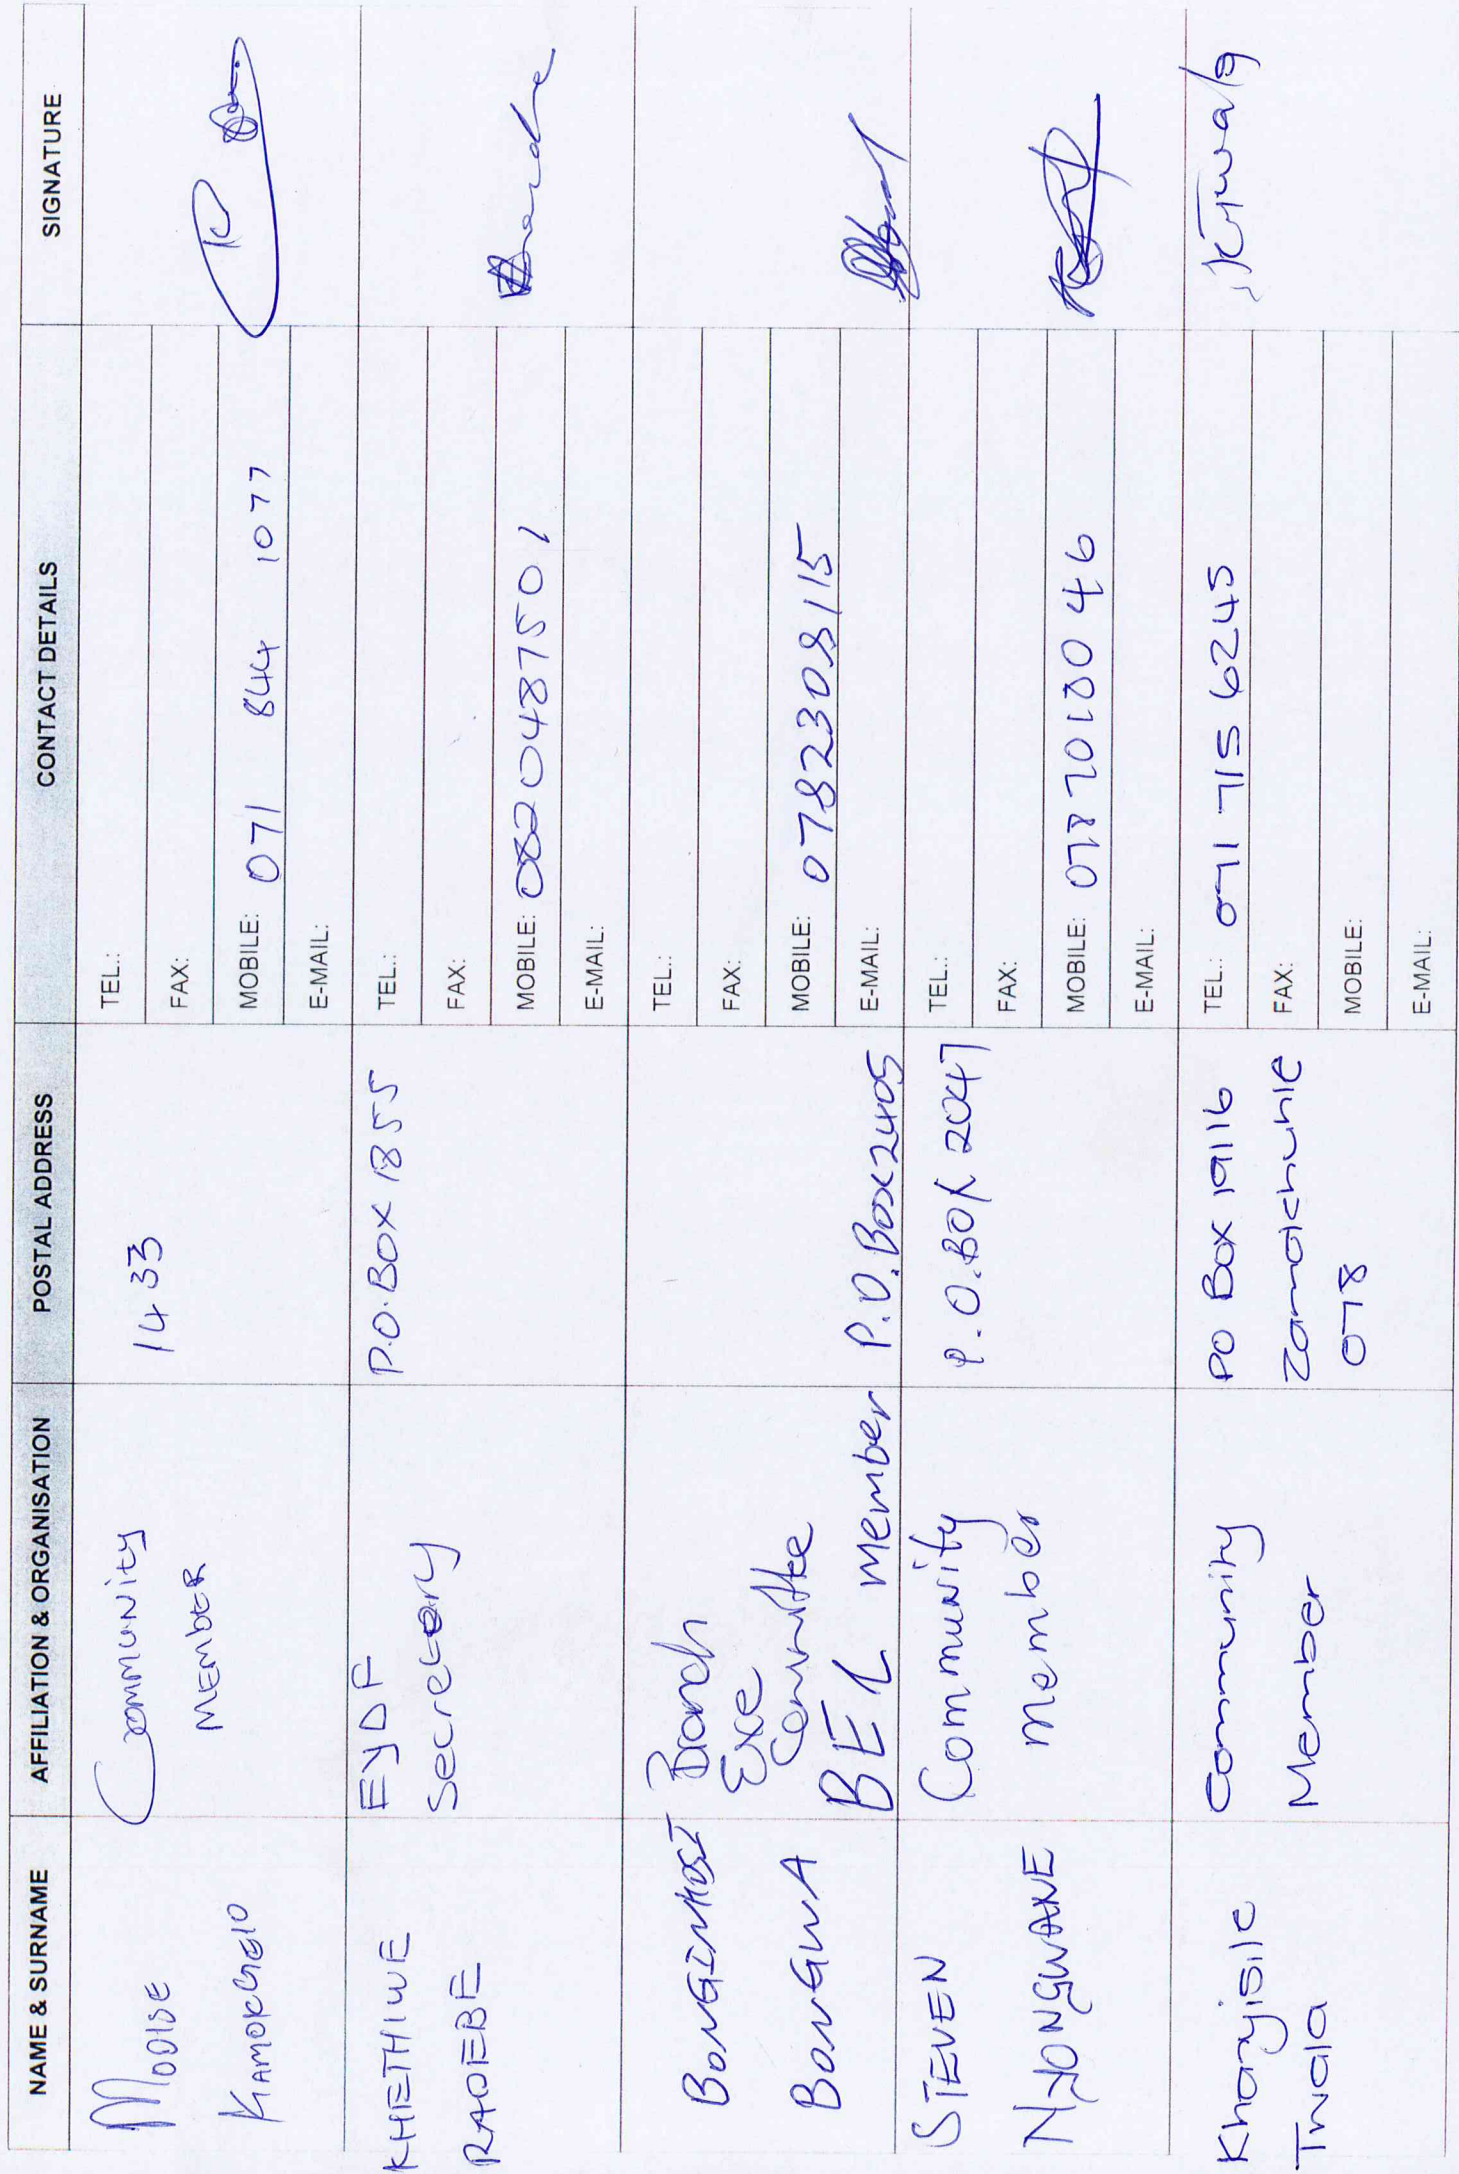 NAME & SURNAME
AFFILIATION & ORGANISATION
POSTAL ADDRESS
CONTACT DETAILS
SIGNATURE
MODISE
Community
MEMBER
1433
TEL.:
FAX:
MOBILE: 071 844 1077
E-MAIL:
KHETHIWE
RADEBE
EYDF
Secretary
P.O.BOX 1855
TEL.:
FAX:
MOBILE: 0820487501
E-MAIL:
BONGINKOSI
BONGWA
Branch
Exe
Committee
BEL member
P.O.Box 2405
TEL.:
FAX:
MOBILE: 0782308115
E-MAIL:
STEVEN
Community
member
P.O.BOX 2047
TEL.:
FAX:
MOBILE:
E-MAIL:
Khanyisile
Twala
Community
Member
PO Box 19116
078
TEL.: 071 715 6245
FAX:
MOBILE:
E-MAIL: